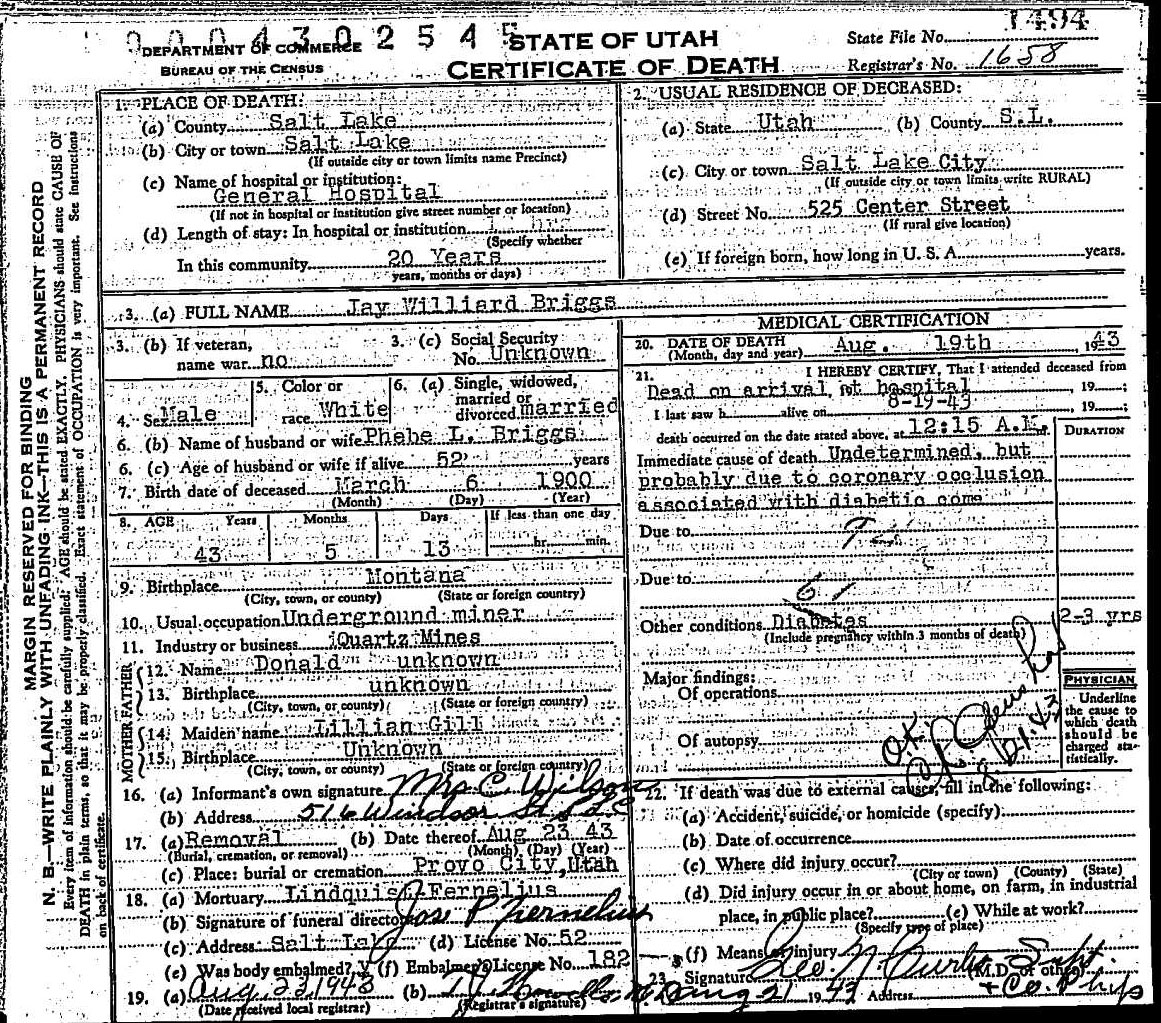 9 0 0 4 3 0 2 5 4 5
1494
DEPARTMENT OF COMMERCE
BUREAU OF THE CENSUS
STATE OF UTAH
CERTIFICATE OF DEATH
State File No.
Registrar's No. 1658
MARGIN RESERVED FOR BINDING
N. B.—WRITE PLAINLY WITH UNFADING INK—THIS IS A PERMANENT RECORD
Every item of information should be carefully supplied. AGE should be stated EXACTLY. PHYSICIANS should state CAUSE OF
DEATH in plain terms, so that it may be properly classified. Exact statement of OCCUPATION is very important. See instructions
on back of certificate.
1. PLACE OF DEATH:
(a) County Salt Lake
(b) City or town Salt Lake
(If outside city or town limits name Precinct)
(c) Name of hospital or institution:
General Hospital
(If not in hospital or institution give street number or location)
(d) Length of stay: In hospital or institution
(Specify whether
In this community 20 Years
years, months or days)
2. USUAL RESIDENCE OF DECEASED:
(a) State Utah (b) County S.L.
(c) City or town Salt Lake City
(If outside city or town limits write RURAL)
(d) Street No. 525 Center Street
(If rural give location)
(e) If foreign born, how long in U. S. A. years.
3. (a) FULL NAME Jay Williard Briggs
3. (b) If veteran,
name war no
3. (c) Social Security
No. Unknown
4. Sex Male
5. Color or
race White
6. (a) Single, widowed,
married or
divorced married
6. (b) Name of husband or wife Phebe L. Briggs
6. (c) Age of husband or wife if alive 52 years
7. Birth date of deceased March 6 1900
(Month) (Day) (Year)
8. AGE Years Months Days If less than one day
43 5 13 hr. min.
9. Birthplace Montana
(City, town, or county) (State or foreign country)
10. Usual occupation Underground miner
11. Industry or business Quartz Mines
FATHER
12. Name Donald unknown
13. Birthplace unknown
(City, town, or county) (State or foreign country)
MOTHER
14. Maiden name Lillian Gill
15. Birthplace Unknown
(City, town, or county) (State or foreign country)
16. (a) Informant's own signature Mrs C. Wilson
(b) Address 516 Windsor St S L C
17. (a) Removal (b) Date thereof Aug 23 43
(Burial, cremation, or removal) (Month) (Day) (Year)
(c) Place: burial or cremation Provo City, Utah
18. (a) Mortuary Lindquist Fernelius
(b) Signature of funeral director Jos. P Fernelius
(c) Address Salt Lake (d) License No. 52
(e) Was body embalmed? Y (f) Embalmer's License No. 182
19. (a) Aug 23 1943 (b)
(Date received local registrar) (Registrar's signature)
MEDICAL CERTIFICATION
20. DATE OF DEATH Aug. 19th 1943
(Month, day and year)
21. I HEREBY CERTIFY, That I attended deceased from
Dead on arrival at hospital 19 ;
I last saw h alive on 8-19-43 19 ;
death occurred on the date stated above, at 12:15 A.M.
DURATION
Immediate cause of death Undetermined, but
probably due to coronary occlusion
associated with diabetic coma
Due to
Due to
61
Other conditions Diabetes 2-3 yrs
(Include pregnancy within 3 months of death)
Major findings:
Of operations
Of autopsy
OK
8.21.43
PHYSICIAN
Underline
the cause to
which death
should be
charged sta-
tistically.
22. If death was due to external causes, fill in the following:
(a) Accident, suicide, or homicide (specify)
(b) Date of occurrence
(c) Where did injury occur?
(City or town) (County) (State)
(d) Did injury occur in or about home, on farm, in industrial
place, in public place? (e) While at work?
(Specify type of place)
(f) Means of injury
23. Signature Geo. N. Curtis Supt.
(M.D. or other)
Aug 21 1943 Address + Co. Phys